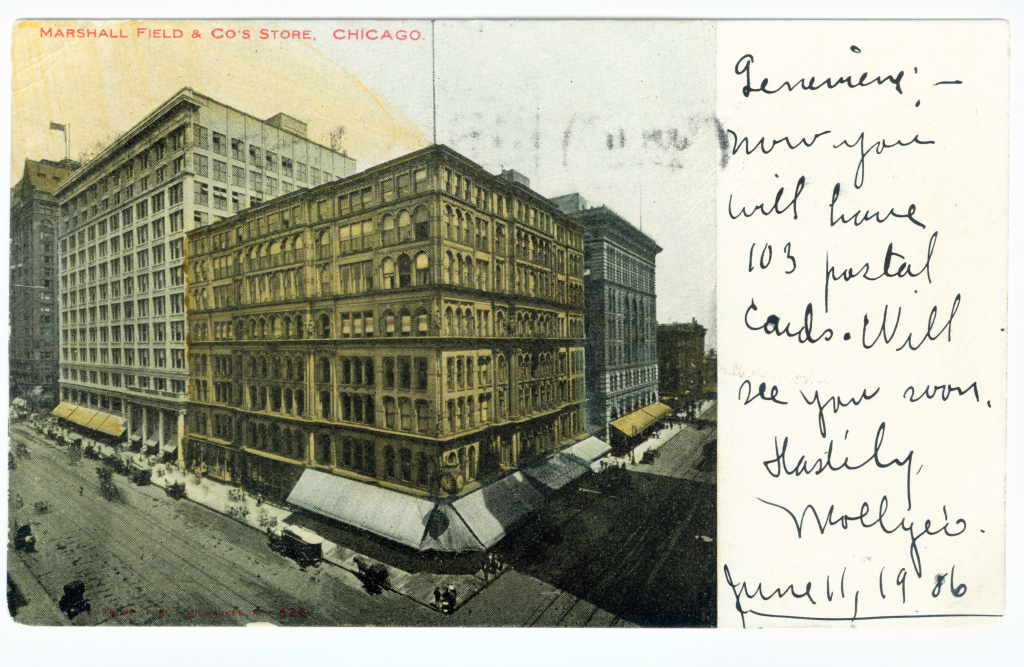 MARSHALL FIELD & CO'S STORE, CHICAGO.
Genevieve; —
now you
will have
103 postal
Cards. Will
see you soon.
Hastily,
Mollye
June 11, 19 06
526